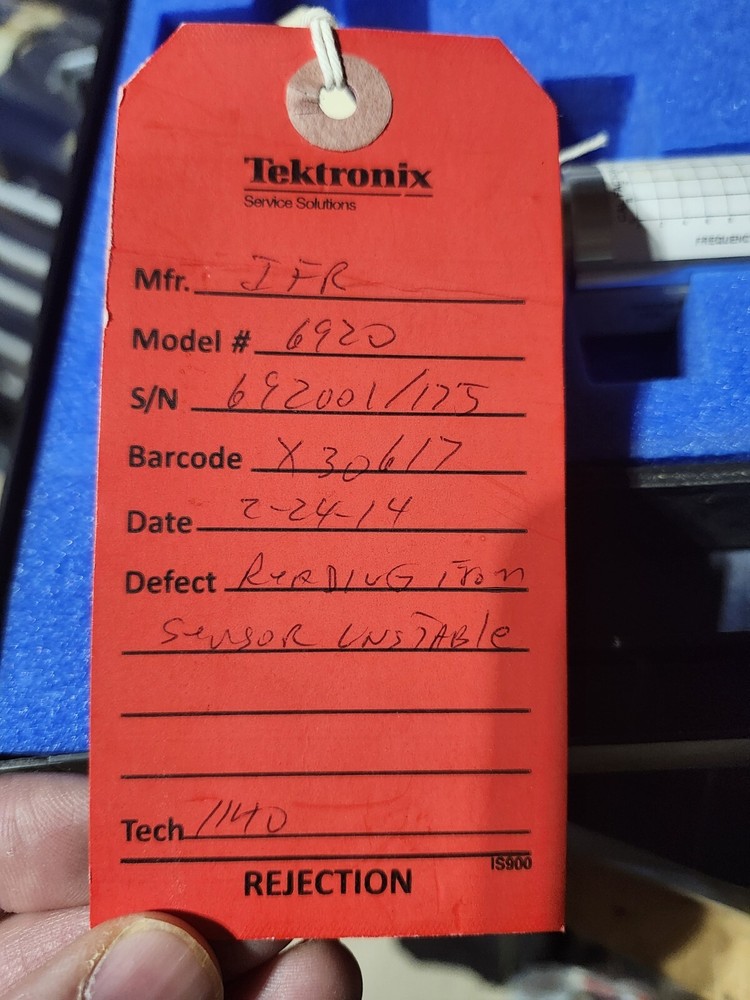 Tektronix
Service Solutions
Mfr. IFR
Model # 6920
S/N 692001/175
Barcode X30617
Date 2-24-14
Defect READING FROM
SENSOR UNSTABLE
Tech 1140
IS900
REJECTION
FREQUENC